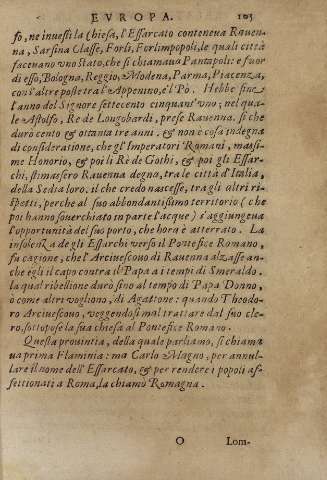 EVROPA. 105
so, ne inuestì la chiesa, l'Essarcato conteneua Rauen-
na, Sarsina Classe, Forlì, Forlimpopoli, le quali città
faceuano vno Stato, che si chiamaua Pantapoli: e fuor
di esso, Bologna, Reggio, Modena, Parma, Piacenza,
con l'altre poste tra l'Appenino, e'l Pò. Hebbe fine
l'anno del Signore settecento cinquant'vno; nel qua-
le Astolfo, Re de Longobardi, prese Rauenna. sì che
durò cento & ottanta tre anni. & non è cosa indegna
di consideratione, che gl'Imperatori Romani, massi-
me Honorio, & poi li Rè de Gothi, & poi gli Essar-
chi, stimassero Rauenna degna, tra le città d'Italia,
della Sedia loro. il che credo nascesse, tra gli altri ri-
spetti, perche al suo abbondantissimo territorio (che
poi hanno souerchiato in parte l'acque) s'aggiungeua
l'opportunità del suo porto, che hora è atterrato. La
insolenza de gli Essarchi verso il Pontefice Romano,
fu cagione, che l'Arciuescouo di Rauenna alzasse an-
che egli il capo contra il Papa a i tempi di Smeraldo.
la qual ribellione durò sino al tempo di Papa Donno,
ò come altri vogliono, di Agattone: quando Theodo-
ro Arciuescouo, veggendosi mal trattare dal suo cle-
ro, sottopose la sua chiesa al Pontefice Romano.
Questa prouintia, della quale parliamo, si chiama
ua prima Flaminia: ma Carlo Magno, per annul-
lare il nome dell'Essarcato, & per rendere i popoli af-
fettionati a Roma, la chiamò Romagna.
O Lom-